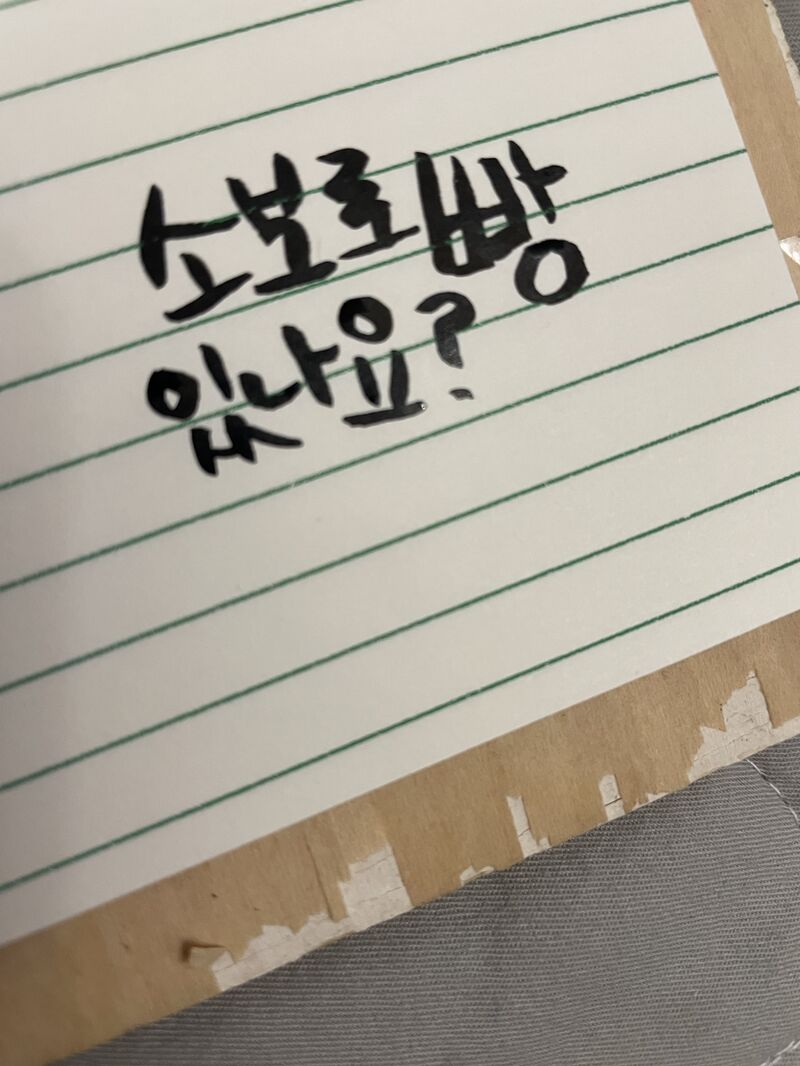 소보로빵
있나요?